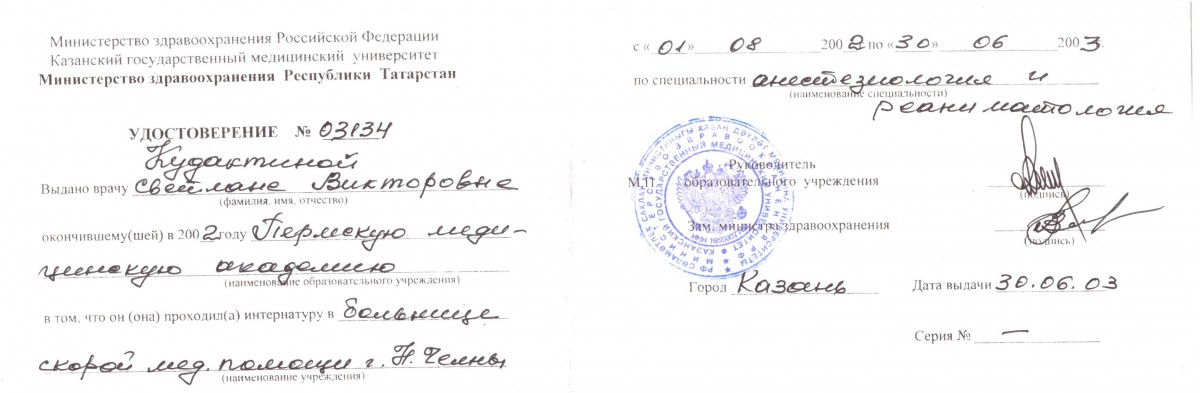 Министерство здравоохранения Российской Федерации
Казанский государственный медицинский университет
Министерство здравоохранения Республики Татарстан
УДОСТОВЕРЕНИЕ № 03134
Кудактиной
Выдано врачу Светлане Викторовне
(фамилия, имя, отчество)
окончившему(шей) в 2002 году Пермскую меди-
цинскую академию
(наименование образовательного учреждения)
в том, что он (она) проходил(а) интернатуру в больнице
скорой мед. помощи г. Н. Челны
(наименование учреждения)
с «01» 08 2002 по «30» 06 2003.
по специальности анестезиология и
(наименование специальности)
реаниматология
Руководитель
М.П. образовательного учреждения
(подпись)
Зам. министра здравоохранения
(подпись)
Город Казань Дата выдачи 30.06.03
Серия № —